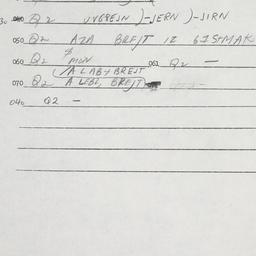 30 040 Q2 UVGREJN )-JERN )-JIRN
050 Q2 AZA BREJT IZ
060 Q2 MON 061 Q2 —
A LABY BREJT
070 Q2 A LEBL, BREJT
040 Q2 —